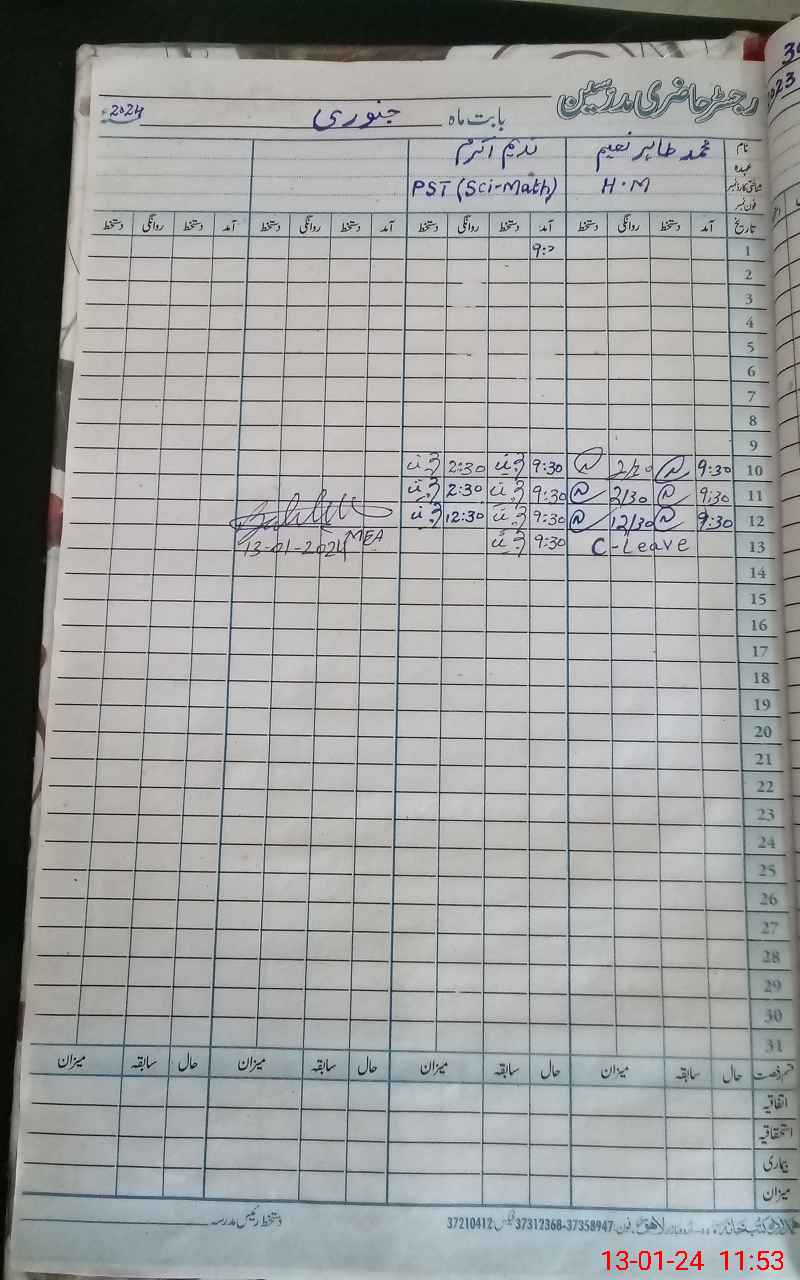 رجسٹر حاضری مدرسین
بابت ماہ جنوری 2024
نام محمد طاہر نعیم ندیم اکرم
عہدہ
شناختی کارڈ نمبر H.M PST (Sci-Math)
فون نمبر
تاریخ آمد دستخط روانگی دستخط آمد دستخط روانگی دستخط آمد دستخط روانگی دستخط آمد دستخط روانگی دستخط
1 9:0
2
3
4
5
6
7
8
9
10 9:30 2/20 9:30 2:30
11 9:30 2/30 9:30 2:30
12 9:30 12/30 9:30 12:30
13 C-Leave 9:30 13-01-2024 MEA
14
15
16
17
18
19
20
21
22
23
24
25
26
27
28
29
30
31
قسم رخصت حال سابقہ میزان حال سابقہ میزان حال سابقہ میزان حال سابقہ میزان
اتفاقیہ
استحقاقیہ
بیماری
میزان
لاہور فون: 37358947-37312368 فیکس: 37210412 دستخط رئیس مدرسہ
13-01-24 11:53